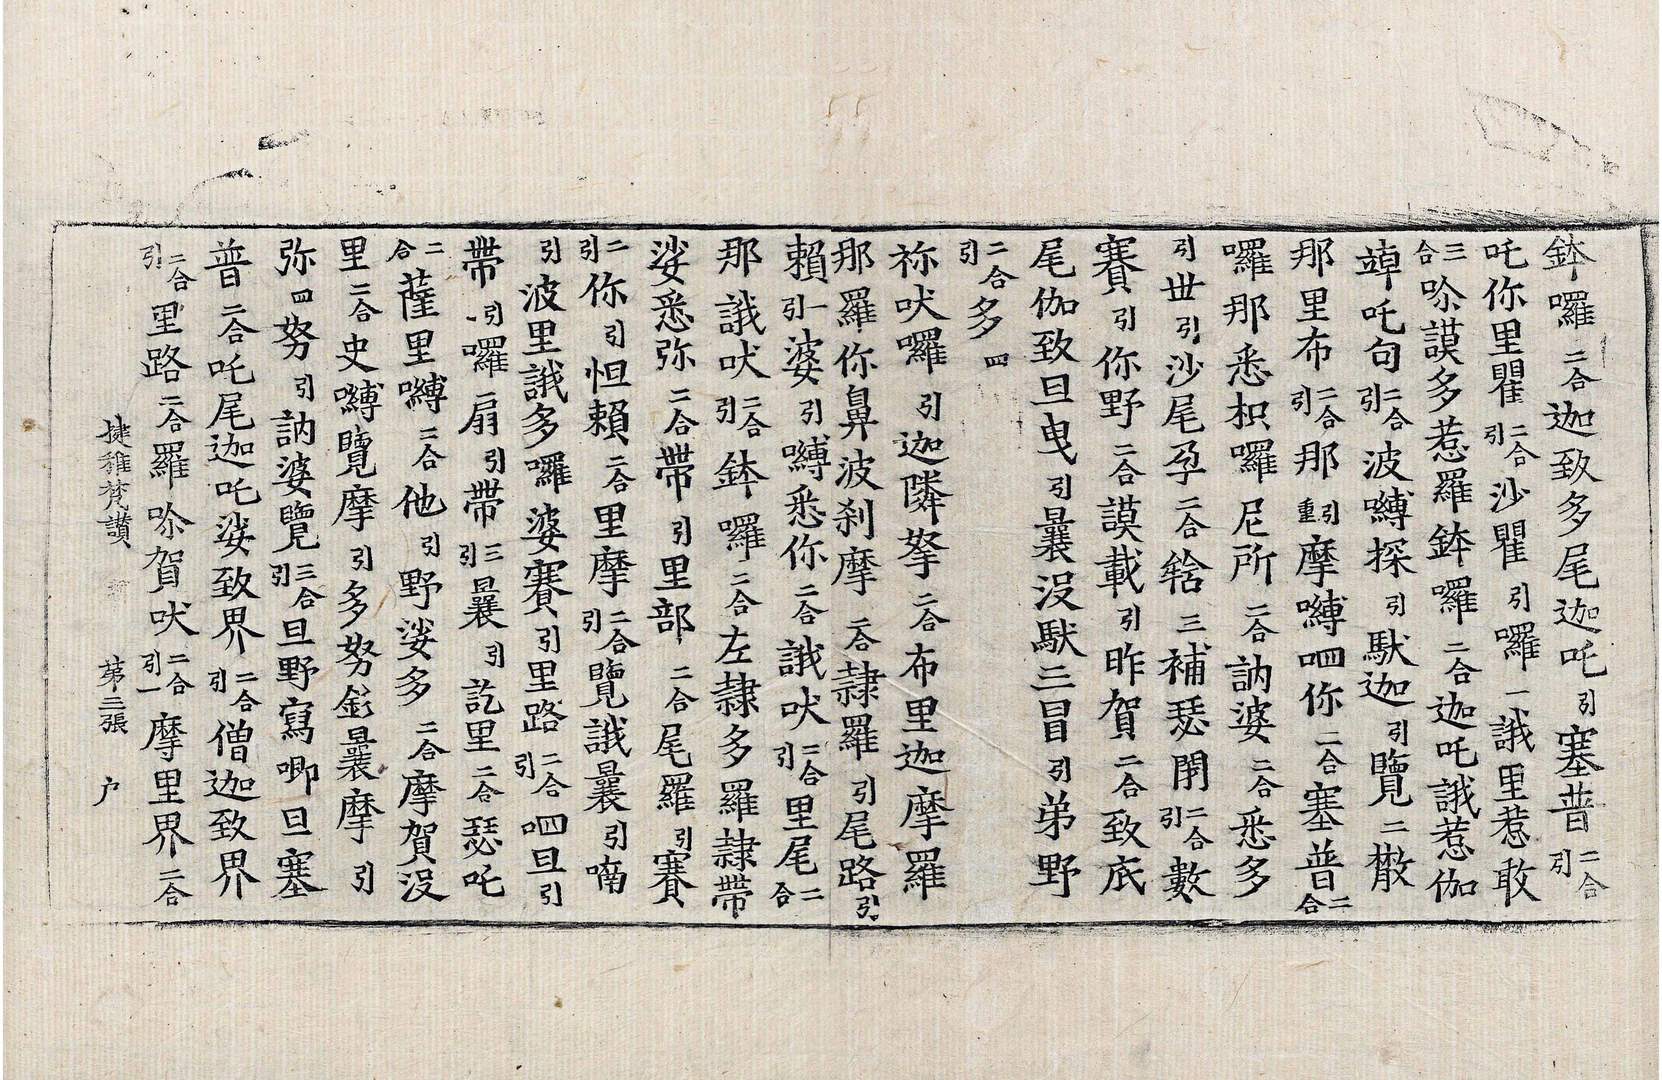 鉢囉二合迦致多尾迦吒引塞普二合引
吒你里瞿二合引沙瞿引囉一誐里惹敢
三合唥謨多惹羅鉢囉二合迦吒誐惹伽
㖿吒句二合引波嚩探引馱迦引覽二撒
那里布二合引那引重摩嚩呬你二合塞普二合
囉那悉枳囉尼所二合訥婆二合悉多
引世引沙尾孕二合鎋三補瑟閉二合引數
賽引你野二合謨載引昨賀二合致底
尾伽致旦曳引曩没馱三冐引弟野
二合引多四
祢吠囉引迦隣拏二合布里迦摩羅
那羅你鼻波刹摩二合隷羅引尾路引
賴引一婆引嚩悉你二合誐吠二合引里尾二合
那誐吠二合引鉢囉二合左隷多羅隷帶
娑悉弥二合帶引里部二合尾羅引賽
二合引你引怛賴二合里摩二合引覽誐曩引喃
引波里誐多囉婆賽引里路二合引呬旦引
帶引囉二扇引帶三引曩引訖里二合瑟吒
二合薩里嚩二合他引野娑多二合摩賀没
里二合史嚩覽摩引多努釤曩摩引
弥四努引訥婆覽三合引旦野寫唧旦塞
普二合吒尾迦吒娑致界二合引僧迦致界
二合引里路二合羅唥賀吠二合引一摩里界二合
揵稚梵讃 第三張 户